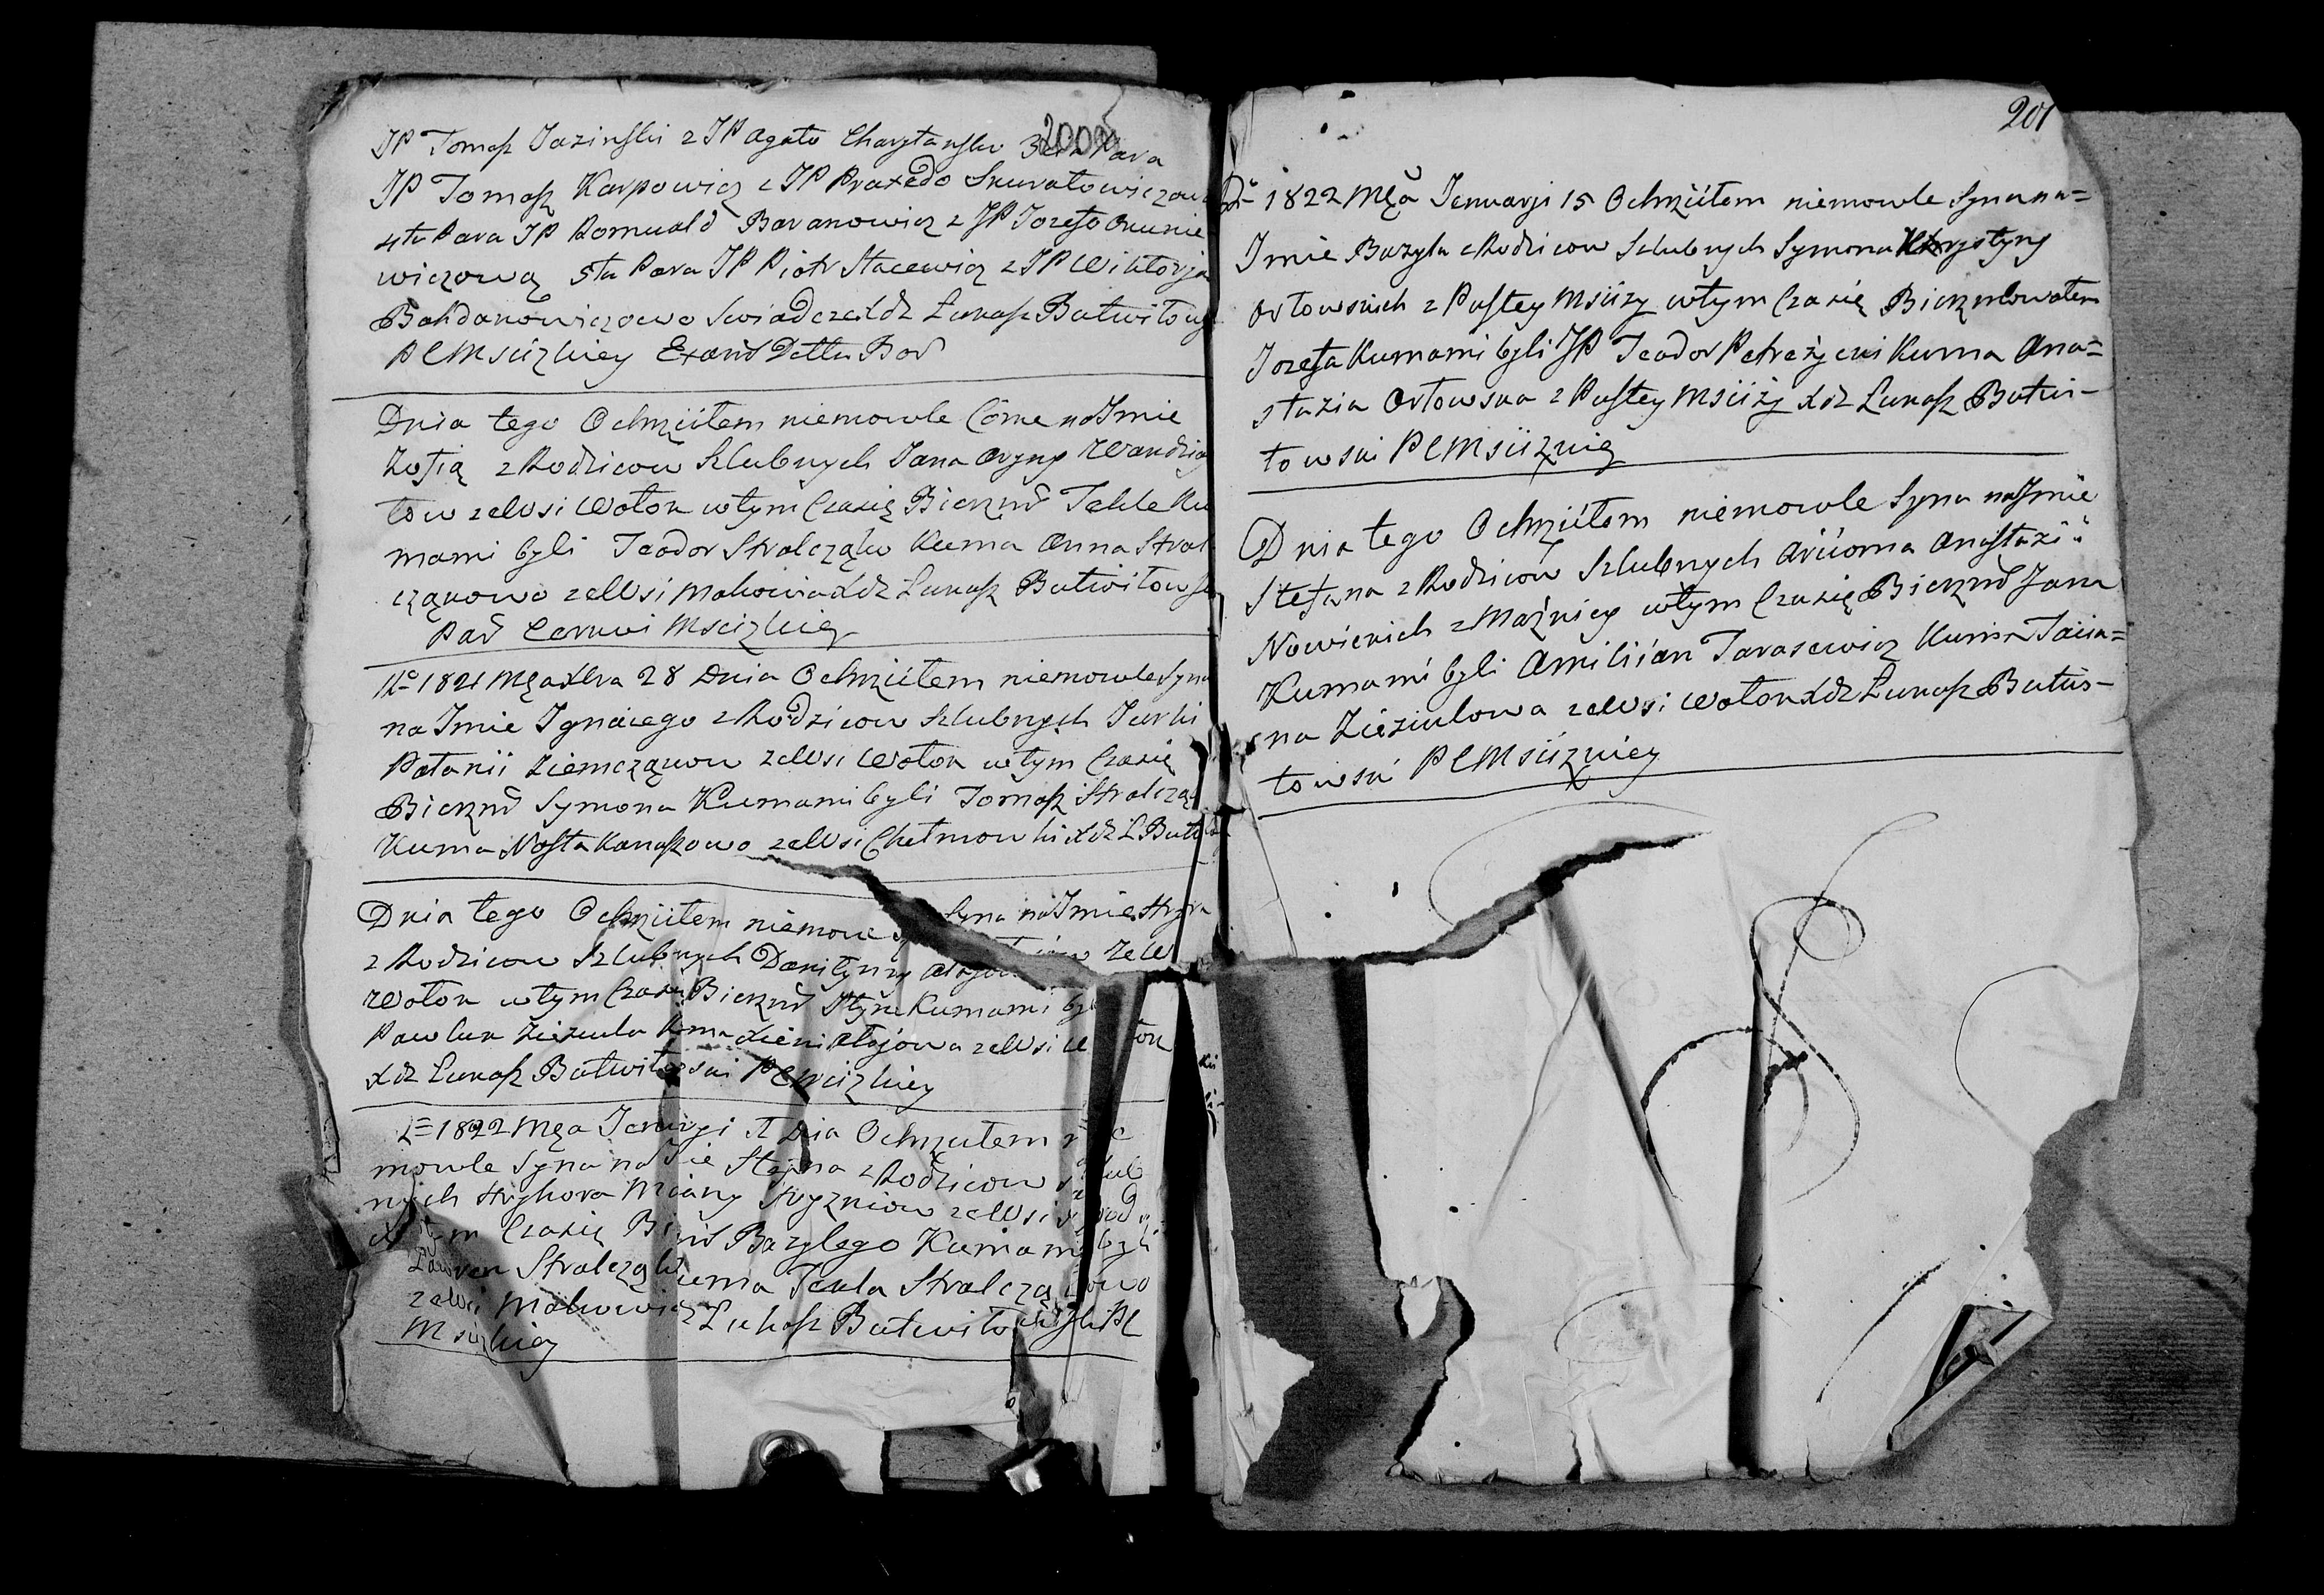 200
JP Tomasz Jazinski z JP Agato Charytansko 3cia Para
JP Tomasz Karpowicz z JP Praxedo Skuratowiczow
4ta Para JP Romuald Baranowicz z JP Jozefo Okunie
wiczową 5ta Para JP Piotr Stacewicz z JP Wiktorja
Bohdanowiczowo Swiadcze Xdz Łukasz Butwiłows
P C Mścizkiey
Dnia tego Ochrzciłem niemowle Córne na Imie
Zofią z Rodzicow Szlubnych Jana Aryny
tow ze Wsi Wołok w tym Czasię Bierzmd Tekle Ku
mami byli Teodor Stralcząk Kuma Anna Stral
cząkowo ze Wsi Mohowia Xdz Łukasz Butwiłows
Par Cerkwi Mscizkiey
1821 Mca Xbra 28 Dnia Ochrzciłem niemowle Syna
na Imie Ignacego z Rodzicow Szlubnych Jurki
Patanii Ziemcząkow ze Wsi Wołok w tym Czasię
Bierzmd Symona Kumami byli Tomasz Stralczą
Kuma Nasta Kanaszowo ze Wsi Chełmowki Xdz Ł Butw
Dnia tego Ochrzciłem niemow Syna na Imie
z Rodzicow Szlubnych ze W
Wołok w tym Czasię Bierzmd Kumami by
Pawluk Ziezula Kuma ze Wsi W ok
Xdz Łukasz Butwiłowski P C Mscizkiey
1822 Mca Januarji Dnia Ochrzciłem nie
mowle Syna na Imie z Rodzicow Szlub
nych Hryhora ze Wsi
w tym Czasię Bazylego Kumami byli
Stralcząk Kuma Tekla Stralcząkowo
ze Wsi Mohowia Xdz Łukasz Butwiłowski P C
Mscizkiey
201
1822 Mca Januarji 15 Ochrzciłem niemowle Syna na=
Imie Bazyla z Rodzicow Szlubnych Symona Krystyny
Orłowskich z Pustey Mścizy w tym Czasię Bierzmowałem
Jozefa Kumami byli JP Teodor Petrażycki Kuma Ana=
stazia Orłowska z Pustey Mścizy Xdz Łukasz Butwi-
łowski P C Mścizkiey
Dnia tego Ochrzciłem niemowle Syna na Imie
Stefana z Rodzicow Szlubnych Arcioma Anastazii
Nowickich z Mażnicy w tym Czasię Bierzmd Jana
Kumami byli Amilijan Tarasewicz Kuma Tacia=
na Ziezulowa ze Wsi Wołok Xdz Łukasz Butwi-
łowski P C Mścizkiey